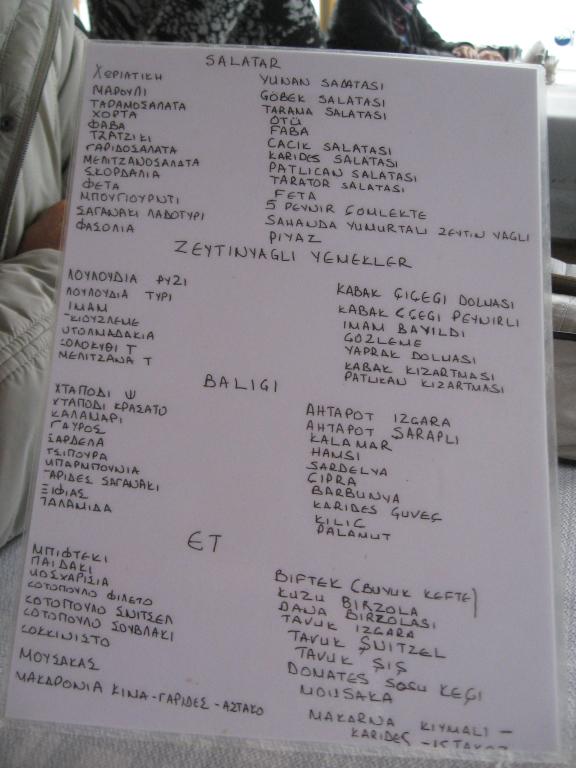 SALATAR
ΧΕΡΙΑΤΙΚΗ YUNAN SADATASI
ΜΑΡΟΥΛΙ GÖBEK SALATASI
ΤΑΡΑΜΟΣΑΛΑΤΑ TARAMA SALATASI
ΧΟΡΤΑ OTÜ
ΦΑΒΑ FABA
ΤΖΑΤΖΙΚΙ CACIK SALATASI
ΓΑΡΙΔΟΣΑΛΑΤΑ KARIDES SALATASI
ΜΕΛΙΤΖΑΝΟΣΑΛΑΤΑ PATLICAN SALATASI
ΣΚΟΡΔΑΛΙΑ TARATOR SALATASI
ΦΕΤΑ FETA
ΜΠΟΥΓΙΟΥΡΝΤΙ 5 PEYNIR ÇOMLEKTE
ΣΑΓΑΝΑΚΙ ΛΑΔΟΤΥΡΙ SAHANDA YUMURTALI ZEYTIN YAGLI
ΦΑΣΟΛΙΑ PIYAZ
ZEYTINYAGLI YEMEKLER
ΛΟΥΛΟΥΔΙΑ ΡΥΖΙ KABAK ÇIÇEGI DOLMASI
ΛΟΥΛΟΥΔΙΑ ΤΥΡΙ KABAK ÇÇEGI PEYNIRLI
ΙΜΑΜ IMAM BAYILDI
ΚΙΟΥΖΛΕΜΕ GÖZLEME
ΝΤΟΛΜΑΔΑΚΙΑ YAPRAK DOLMASI
ΚΟΛΟΚΥΘΙ Τ KABAK KIZARTMASI
ΜΕΛΙΤΖΑΝΑ Τ PATLIKAN KIZARTMASI
BALIGI
ΧΤΑΠΟΔΙ Ψ AHTAPOT IZGARA
ΧΤΑΠΟΔΙ ΚΡΑΣΑΤΟ AHTAPOT SARAPLI
ΚΑΛΑΜΑΡΙ KALAMAR
ΓΑΥΡΟΣ HAMSI
ΣΑΡΔΕΛΑ SARDELYA
ΤΣΙΠΟΥΡΑ ÇIPRA
ΜΠΑΡΜΠΟΥΝΙΑ BARBUNYA
ΓΑΡΙΔΕΣ ΣΑΓΑΝΑΚΙ KARIDES GUVEÇ
ΞΙΦΙΑΣ KILIÇ
ΠΑΛΑΜΙΔΑ PALAMUT
ET
ΜΠΙΦΤΕΚΙ BIFTEK (BUYUK KEFTE)
ΠΑΙΔΑΚΙ KUZU BIRZOLA
ΜΟΣΧΑΡΙΣΙΑ DANA BIRZOLASI
ΚΟΤΟΠΟΥΛΟ ΦΙΛΕΤΟ TAVUK IZGARA
ΚΟΤΟΠΟΥΛΟ ΣΝΙΤΣΕΛ TAVUK ŞNITZEL
ΚΟΤΟΠΟΥΛΟ ΣΟΥΒΛΑΚΙ TAVUK ŞIŞ
ΚΟΚΚΙΝΙΣΤΟ DOMATES SOSU KEÇI
ΜΟΥΣΑΚΑΣ MOUSAKA
ΜΑΚΑΡΟΝΙΑ ΚΙΜΑ-ΓΑΡΙΔΕΣ-ΑΣΤΑΚΟ MAKARNA KIYMALI -
KARIDES - ISTAKOZ